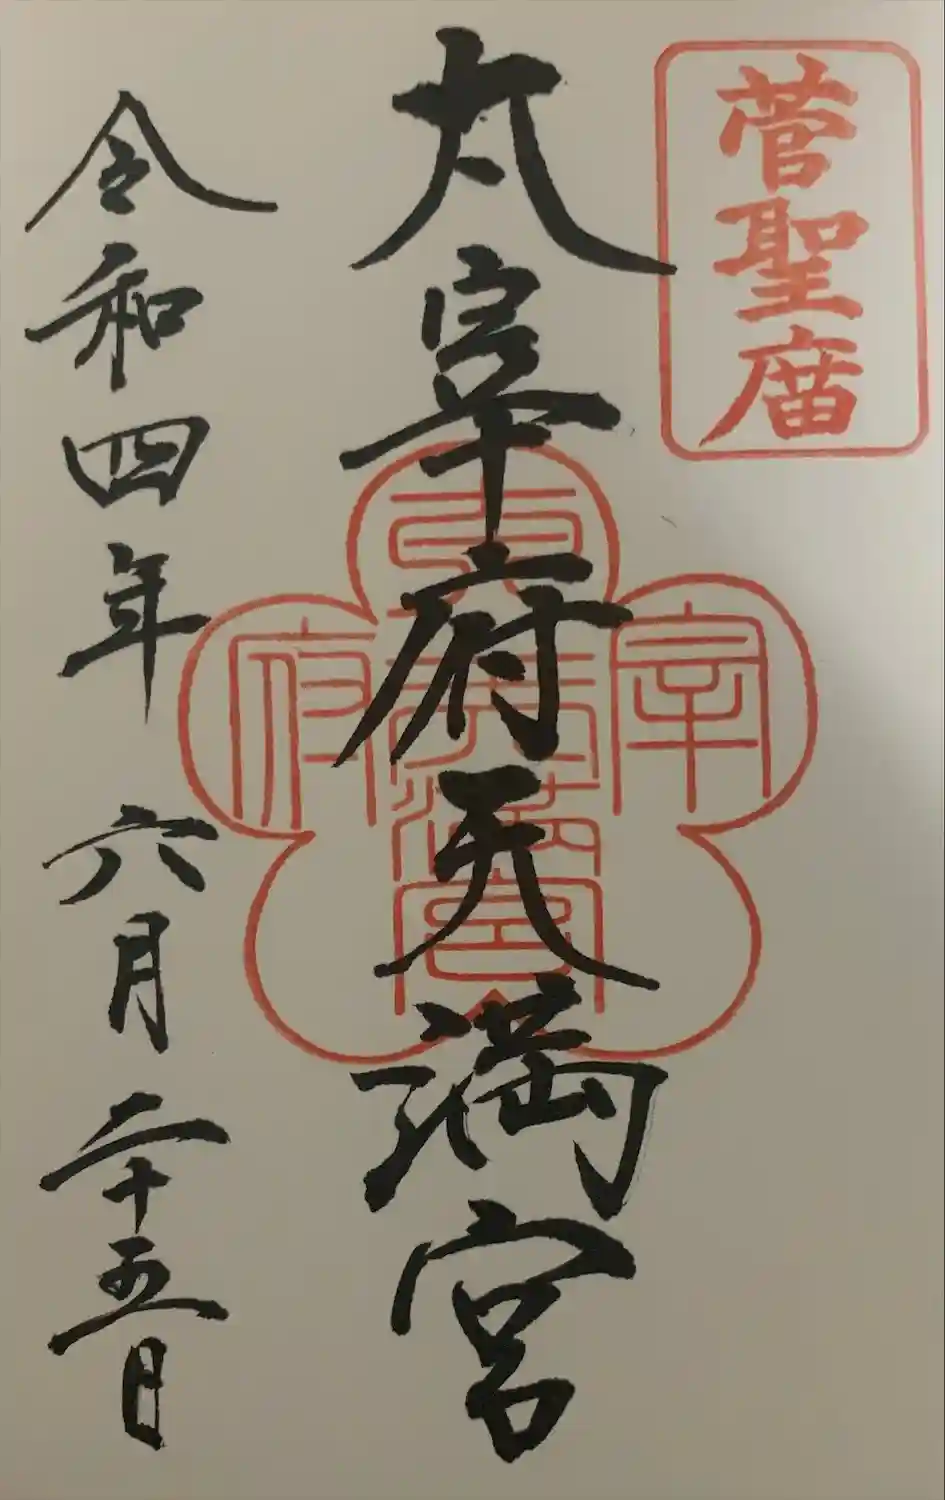 菅聖庿
太宰府天満宮
太宰府天満宮
令和四年 六月二十五日